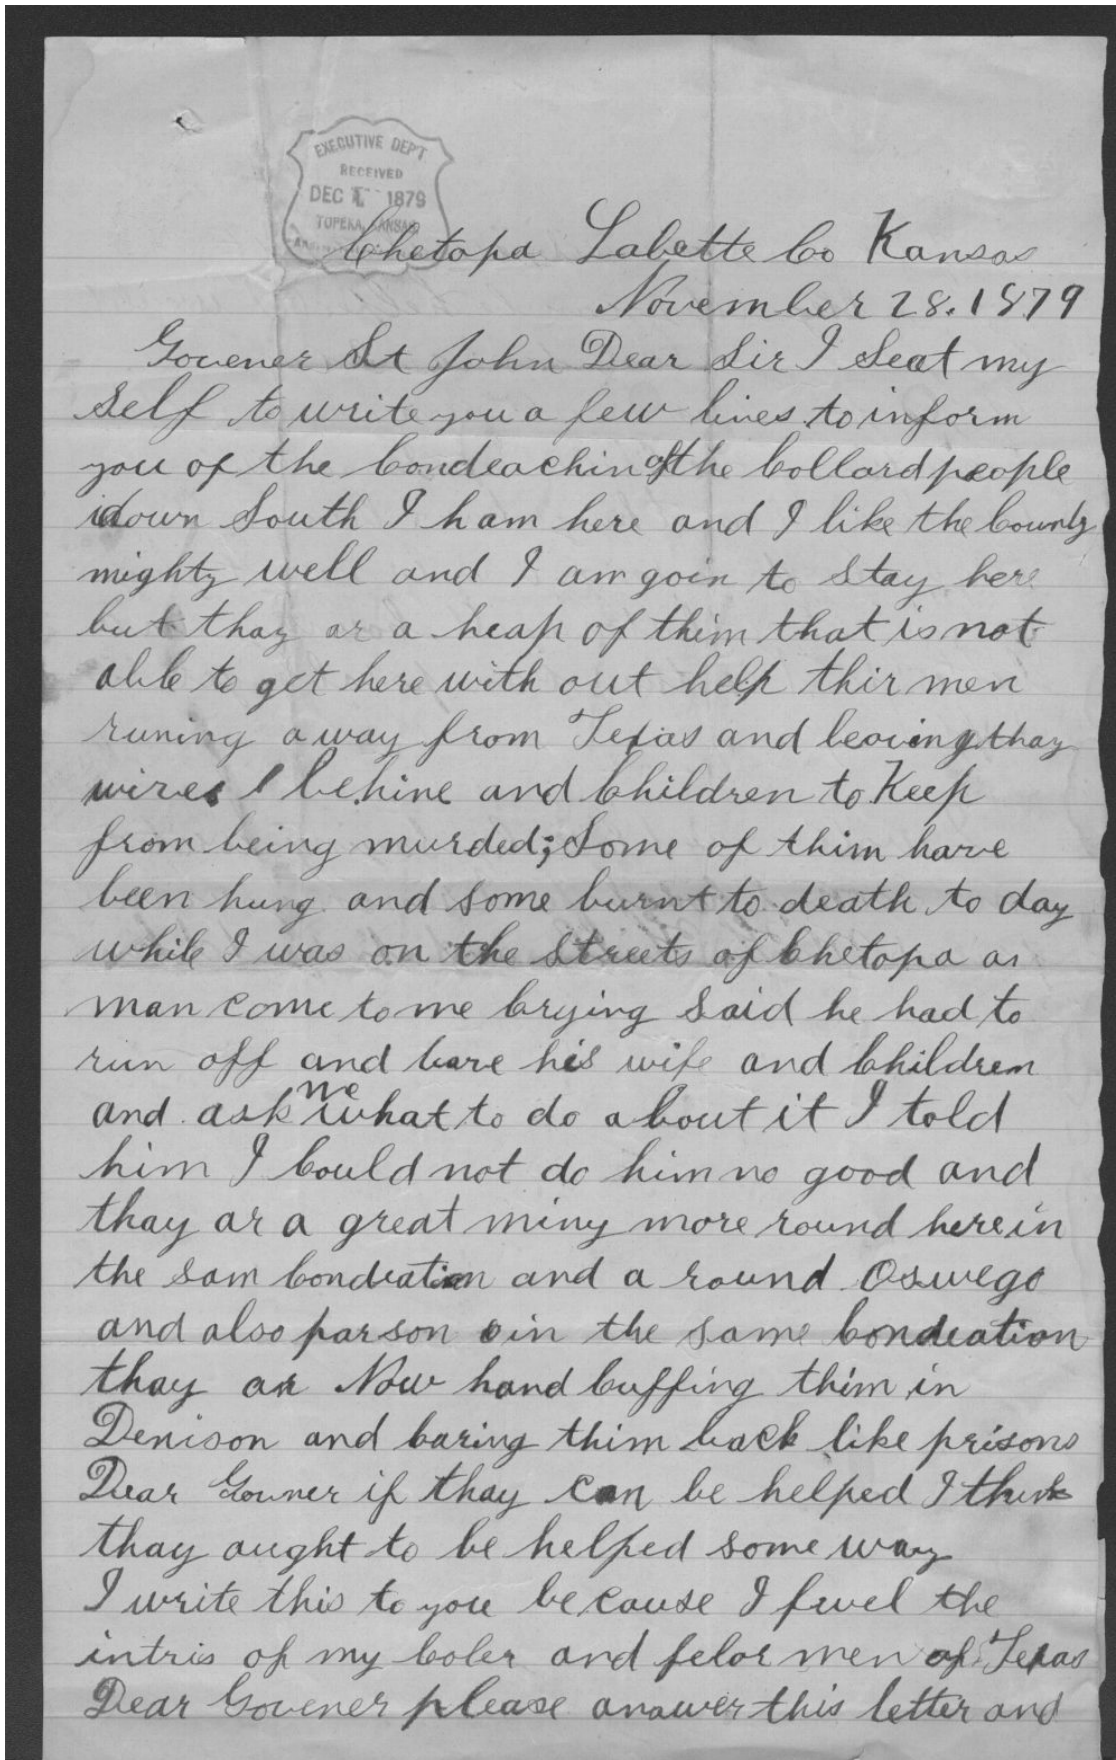 EXECUTIVE DEP'T
RECEIVED
DEC 1 1879
TOPEKA, KANSAS
Chetopa Labette Co Kansas
November 28. 1879
Govener St John Dear Sir I Seat my
Self to write you a few lines to inform
you of the Condeachin of the Collard people
down South I ham here and I like the County
mighty well and I am goin to Stay here
but thay ar a heap of thim that is not
able to get here with out help thir men
runing away from Texas and leaving thay
wives behine and Children to Keep
from being murded; Some of thim have
been hung and some burnt to death to day
while I was on the Streets of Chetopa a
man come to me Crying Said he had to
run off and leave his wife and Children
and ask me what to do about it I told
him I Could not do him no good and
thay ar a great miny more round here in
the Sam Condeation and a round Oswego
and also parson in the same Condeation
thay ar Now hand Cuffing thim in
Denison and Caring thim back like prisons
Dear Govner if thay can be helped I think
thay aught to be helped some way
I write this to you be cause I fuel the
intris of my Coler and felor men of Texas
Dear Govener please answer this letter and